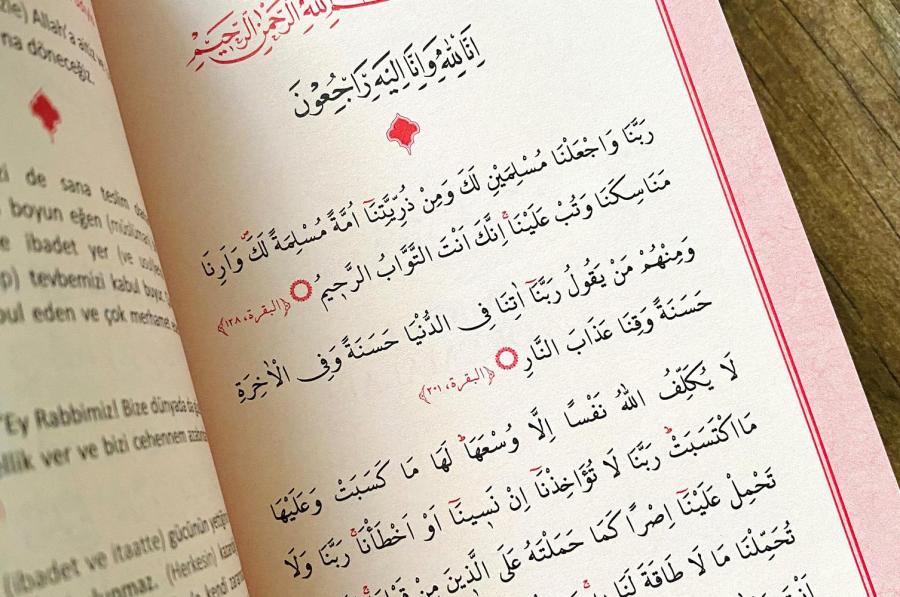 Allah'a aitiz ve
döneceğiz.
de sana teslim
boyun eğen
ibadet yer (ve
tevbemizi kabul buyur
eden ve çok merhamet
"Ey Rabbimiz! Bize dünyada da
ver ve bizi cehennem
(ibadet ve itaatte) gücünün
(Herkesin)
kendi
اللهِ الرَّحْمٰنِ الرَّحِيمِ
اِنَّا لِلّٰهِ وَاِنَّٓا اِلَيْهِ رَاجِعُونَ
رَبَّنَا وَاجْعَلْنَا مُسْلِمَيْنِ لَكَ وَمِنْ ذُرِّيَّتِنَٓا اُمَّةً مُسْلِمَةً لَكَۖ وَاَرِنَا
مَنَاسِكَنَا وَتُبْ عَلَيْنَاۚ اِنَّكَ اَنْتَ التَّوَّابُ الرَّحِيمُ ﴿البقرة، ١٢٨﴾
وَمِنْهُمْ مَنْ يَقُولُ رَبَّنَٓا اٰتِنَا فِي الدُّنْيَا حَسَنَةً وَفِي الْاٰخِرَةِ
حَسَنَةً وَقِنَا عَذَابَ النَّارِ ﴿البقرة، ٢٠١﴾
لَا يُكَلِّفُ اللّٰهُ نَفْسًا اِلَّا وُسْعَهَاۜ لَهَا مَا كَسَبَتْ وَعَلَيْهَا
مَا اكْتَسَبَتْۜ رَبَّنَا لَا تُؤَاخِذْنَٓا اِنْ نَسِينَٓا اَوْ اَخْطَأْنَاۚ رَبَّنَا وَلَا
تَحْمِلْ عَلَيْنَٓا اِصْرًا كَمَا حَمَلْتَهُ عَلَى الَّذِينَ مِنْ
تُحَمِّلْنَا مَا لَا طَاقَةَ لَنَا